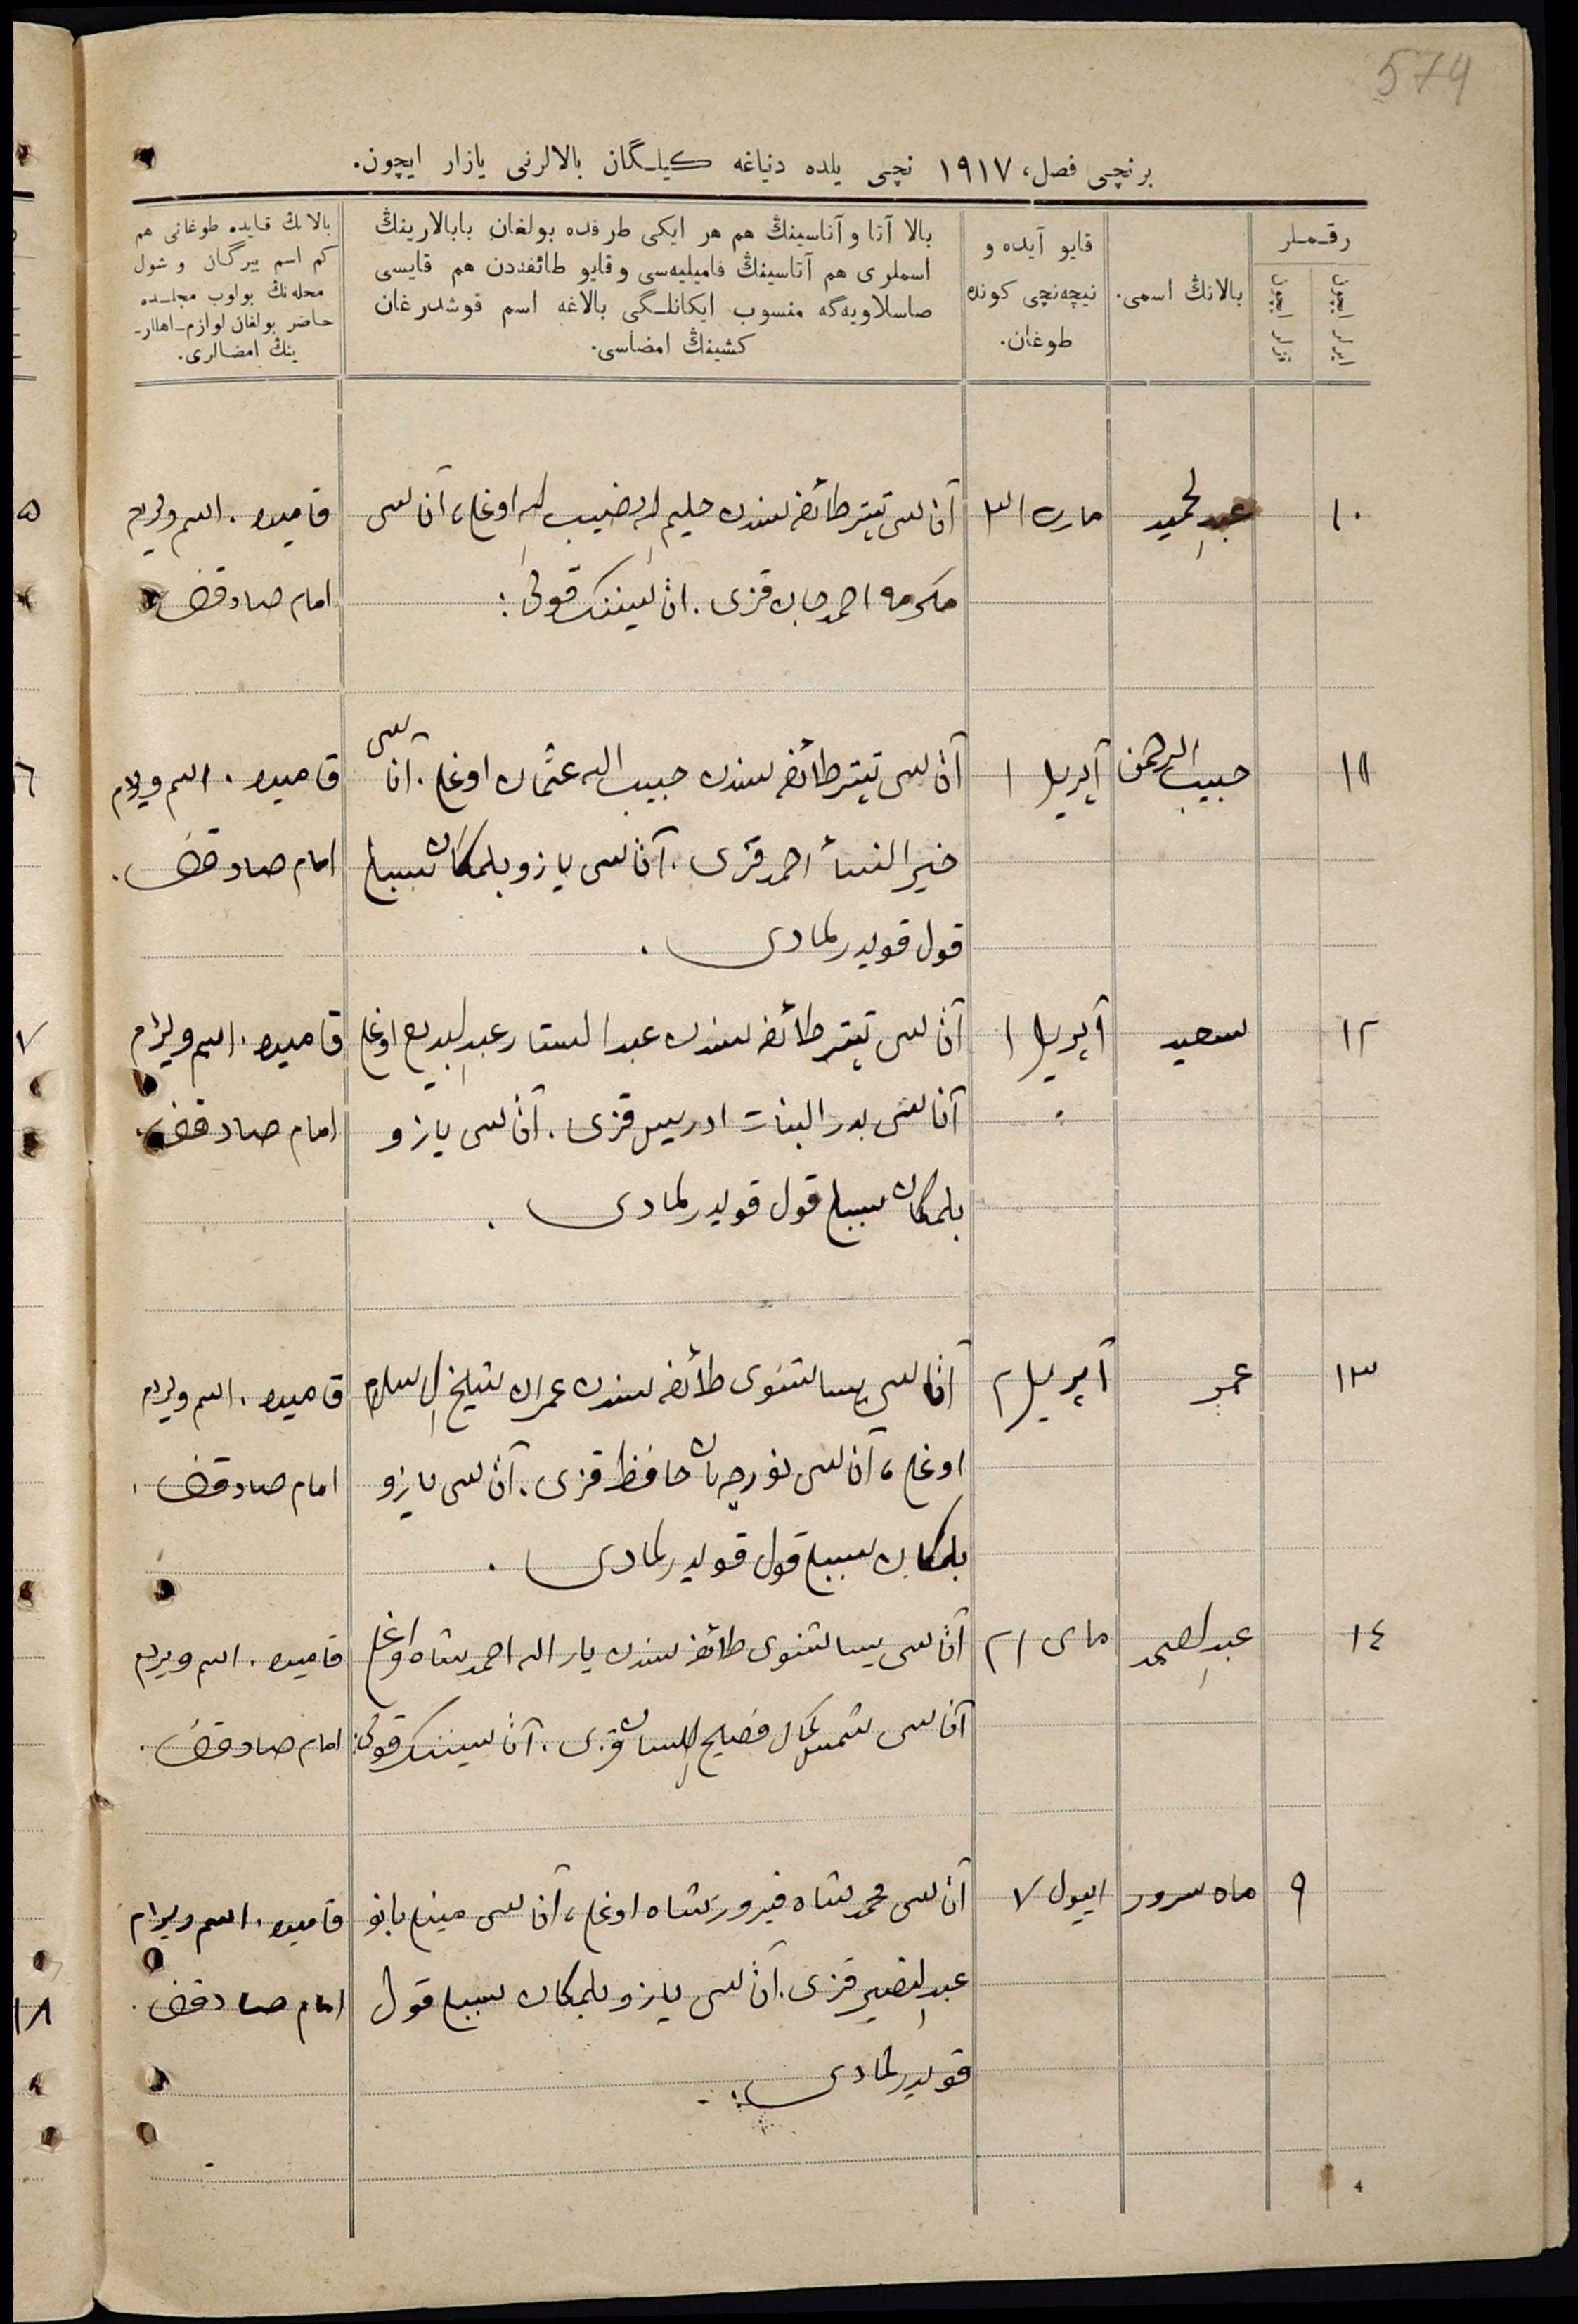 574
برنچی فصل، ١٩١٧ نچی یلده دنیاغه کیلـگان بالالرنی یازار ایچون.
رقـمـلر
ایرلر ایچون
قزلر ایچون
بالانڭ اسمی.
قایو آیده و
نیچه‌نچی کونده
طوغان.
بالا آتا و آناسینڭ هم هر ایکی طرفده بولغان بابالارینڭ
اسملری هم آتاسینڭ فامیلیه‌سی و قایو طائفه‌دن هم قایسی
صاسلاویه‌گه منسوب ایکانلـگی بالاغه اسم قوشدرغان
کشینڭ امضاسی.
بالانڭ قایده طوغانی هم
کم اسم بیرگان و شول
محله‌نڭ بولوب مجلـسده
حاضر بولغان لوازم‌ـ اهللرـ
ینڭ امضالری.
١٠ عبدالحمید مارت ٣١ آتاسی تیتر طائفه‌سندن حلیم الله حبیب الله اوغلی، آناسی
مکرمه احمدجان قزی. آتاسیننک قولی:
قامیده. اسم ویردم
امام صادقوف
١١ حبیب الرحمن آپریل ١ آتاسی تیتر طائفه‌سندن حبیب الله عثمان اوغلی. آناسی
خیرالنسأ احمد قزی. آتاسی یازو بلمکان سببلی
قول قویدرلمادی.
قامیده. اسم ویردم
امام صادقوف.
١٢ سعید آپریل ١ آتاسی تیتر طائفه‌سندن عبدالستار عبدالبدیع اوغلی
آناسی بدرالبنات ادریس قزی. آتاسی یازو
بلمکان سببلی قول قویدرلمادی.
قامیده. اسم ویردم
امام صادقوف
١٣ عمر آپریل ٢ آتاسی یسالتنوی طائفه‌سندن عمران شیخ الاسلام
اوغلی، آناسی نورجهان حافظ قزی. آتاسی یازو
بلمکان سببلی قول قویدرلمادی.
قامیده. اسم ویردم
امام صادقوف.
١٤ عبدالصمد مای ٢١ آتاسی یسالتنوی طائفه‌سندن یارالله احمدشاه اوغلی
آناسی شمس کمال فصیح اللسان قزی. آتاسیننک قولی:
قامیده. اسم ویردم
امام صادقوف.
٩ ماه سرور اییول ٧ آتاسی محمدشاه فیروزشاه اوغلی، آناسی بانو
عبدالنصیر قزی. آتاسی یازو بلمکان سببلی قول
قویدرلمادی.
قامیده. اسم ویردم
امام صادقوف.
4